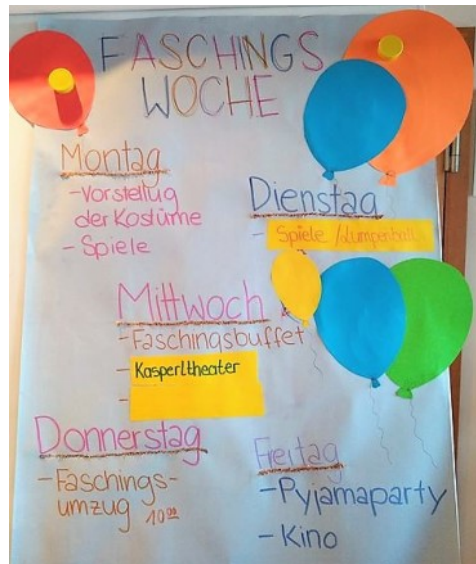 FASCHINGS
WOCHE
Montag
-Vorstellug
der Kostüme
- Spiele
Dienstag
- Spiele /Lumpenball
Mittwoch
-Faschingsbuffet
- Kasperltheater
-
Donnerstag
-Faschings-
umzug 10⁰⁰
Freitag
-Pyjamaparty
- Kino